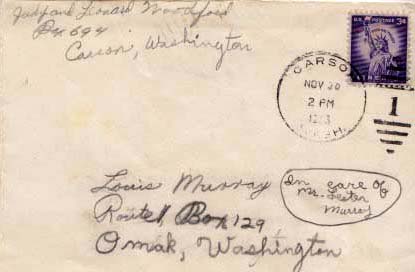 Judy and Leonard Woodford
Bx 694
Carson, Washington
U.S. POSTAGE 3¢
CARSON
NOV 30
2 PM
WASH.
1
In care of
Mr. Lester
Murray
Louis Murray
Route 1, Box 129
Omak, Washington